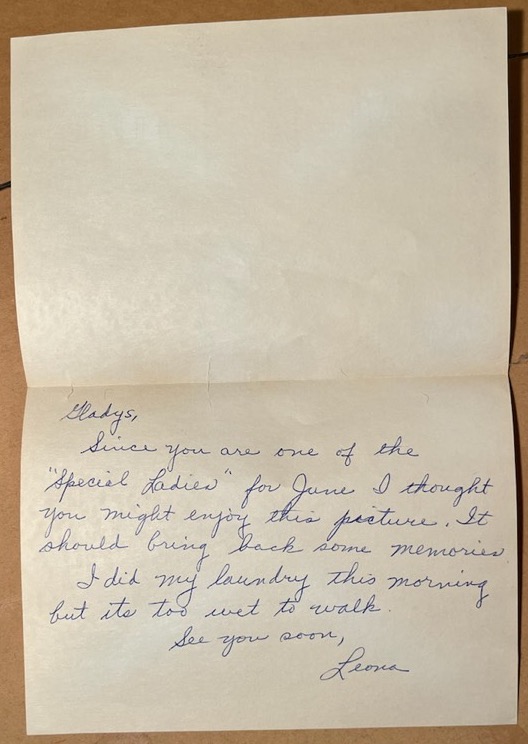 Gladys,
Since you are one of the
"Special Ladies" for June I thought
you might enjoy this picture. It
should bring back some memories
I did my laundry this morning
but its too wet to walk.
See you soon,
Leona